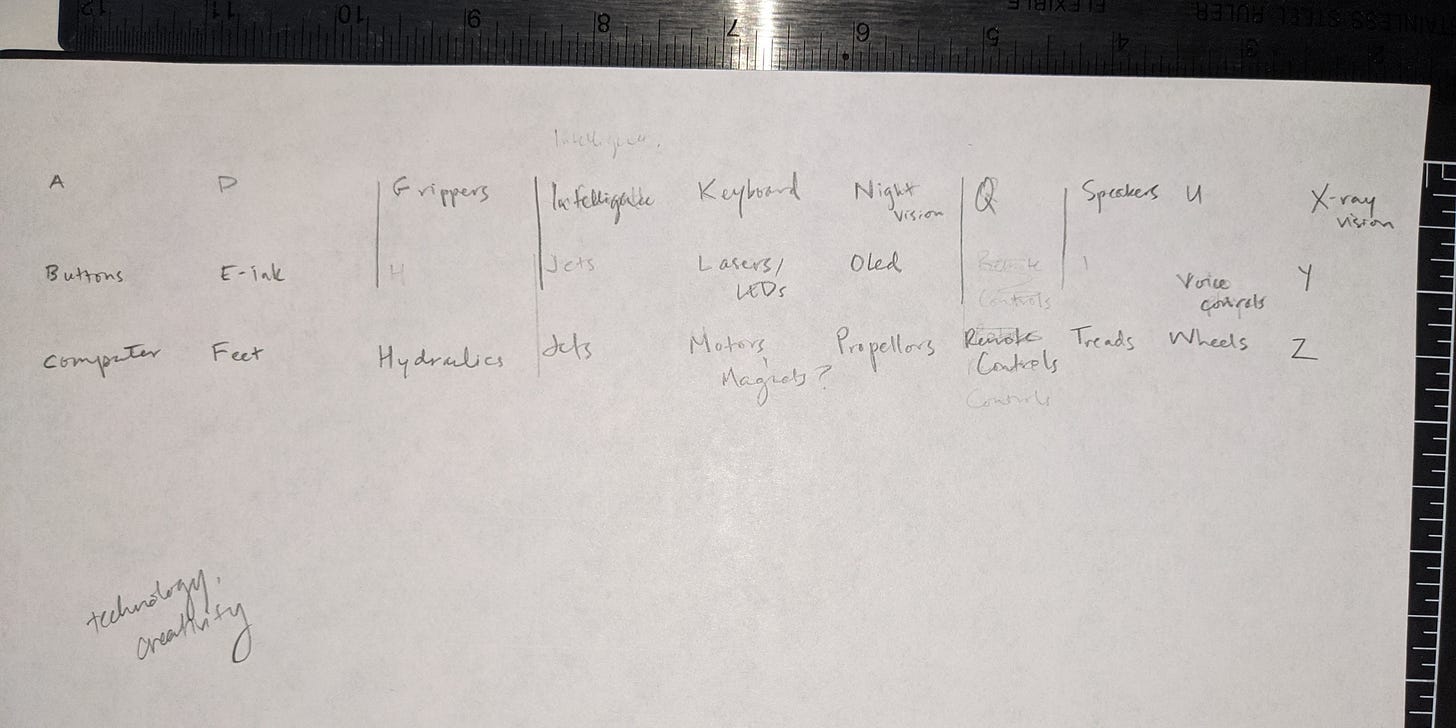 12 11 10 9 8 7 6 5 4 3 2
FLEXIBLE STAINLESS STEEL RULER
A D Grippers Keyboard Night Q Speakers U X-ray
vision vision
Buttons E-ink H Jets Lasers/ Oled Remote Voice Y
LEDs Controls controls
Computer Feet Hydraulics Jets Motors Propellors Remote Treads Wheels Z
Magnets? Controls
Controls
technology,
creativity